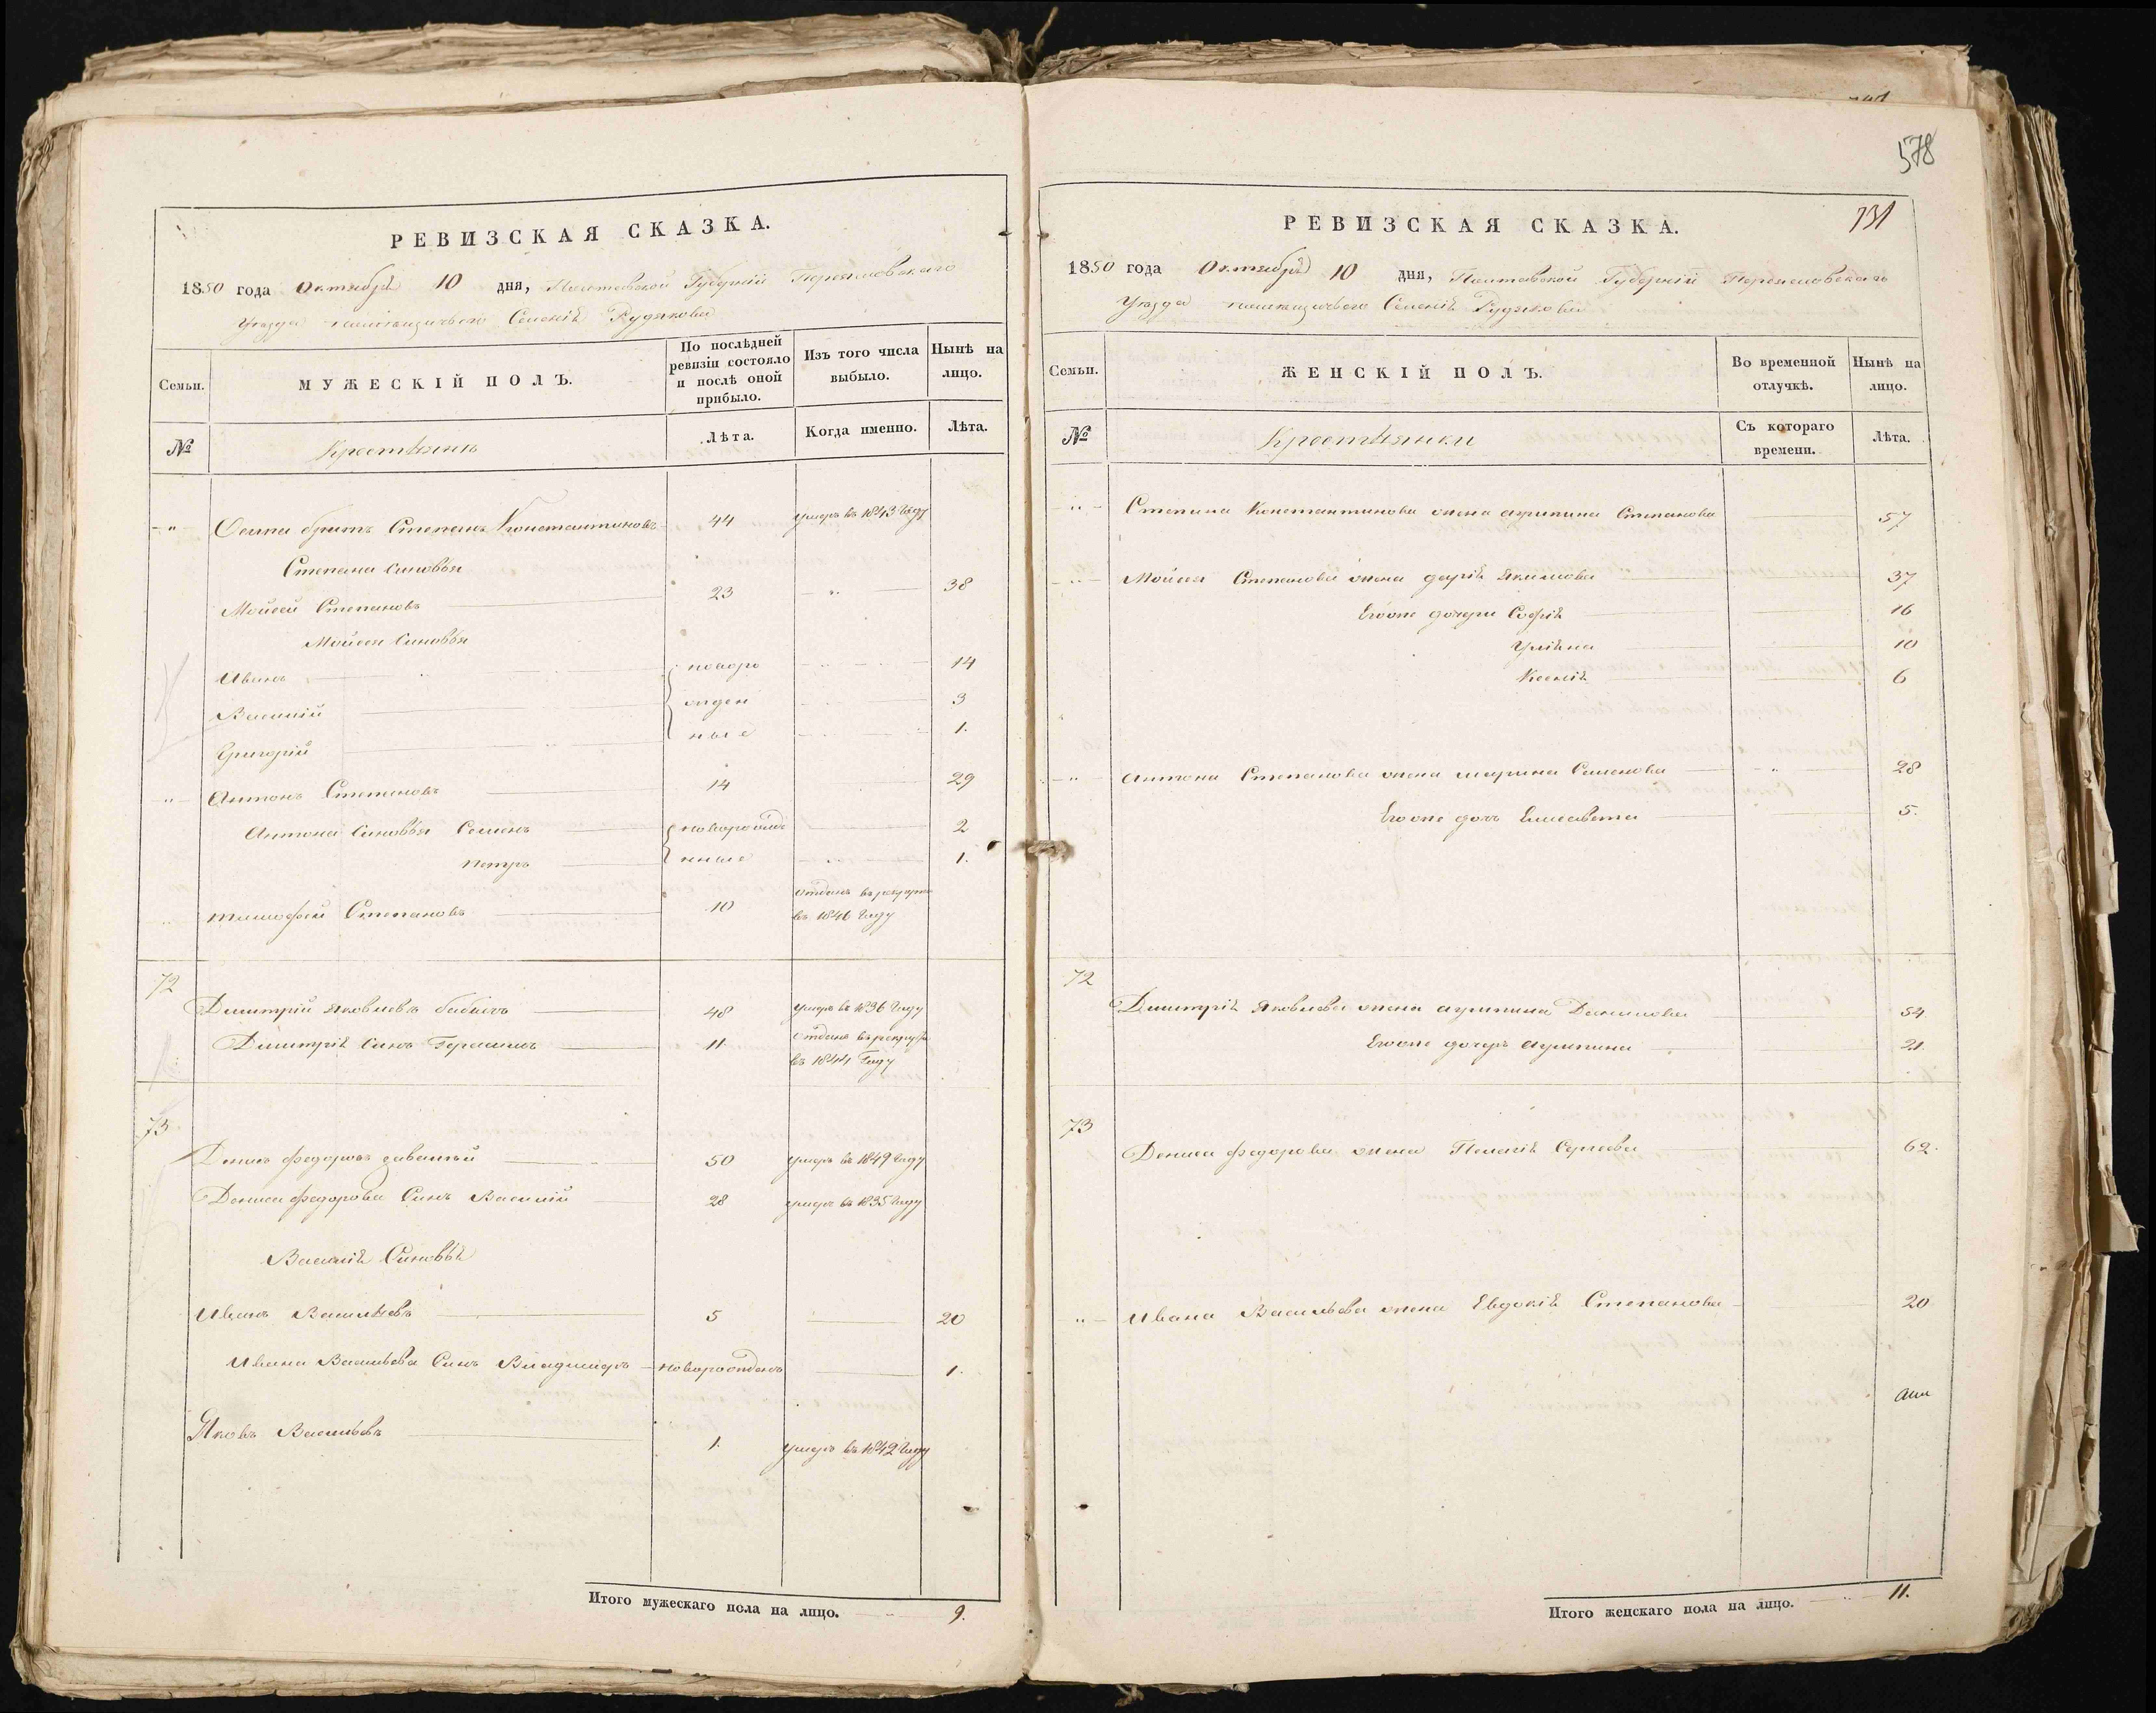 РЕВИЗСКАЯ СКАЗКА.
1850 года Октября 10 дня, Полтавской Губерніи Переяславскаго
Уезда помещичьего Селенія Рудякова
Семьи.
МУЖЕСКІЙ ПОЛЪ.
По послѣдней ревизіи состояло и послѣ оной прибыло.
Изъ того числа выбыло.
Нынѣ на лицо.
№
Крестьянъ
Лѣта.
Когда именно.
Лѣта.
-"- Осипа братъ Степанъ Константиновъ 44 умеръ въ 1843 году
Степана Сыновья
Мойсей Степановъ 23 " 38
Мойсея Сыновья
Иванъ новоро 14
Василій жден 3
Григорій ные 1.
" Антонъ Степановъ 14 29
Антона Сыновья Семенъ новорожде 2
Петръ нные 1.
Тимофей Степановъ 10 отданъ въ рекруты
въ 1846 году
72
Дмитрій Яковлевъ бабичъ 48 умеръ въ 1836 году
Дмитрія Сынъ Герасимъ 11. отданъ въ рекруты
въ 1844 Году
73
Денисъ Федоровъ 50 умеръ въ 1849 году
Дениса Федорова Сынъ Василій 28 умеръ въ 1835 году
Василія Сыновья
Иванъ Васильевъ 5 20
Ивана Васильева Сынъ Владимиръ новорожденъ 1.
Яковъ Васильевъ 1. умеръ въ 1842 году
Итого мужескаго пола на лицо. 9.
578
731
РЕВИЗСКАЯ СКАЗКА.
1850 года Октября 10 дня, Полтавской Губерніи Переяславскаго
Уезда помещичьего Селенія Рудякова
Семьи.
ЖЕНСКІЙ ПОЛЪ.
Во временной отлучкѣ.
Нынѣ на лицо.
№
Крестьянки
Съ котораго времени.
Лѣта.
" Степана Константинова жена агрипина Степанова 57
" Мойсея Степанова жена дарія Якимова 37
Егоже дочери Софія 16
Уліяна 10
Ксенія 6
" Антона Степанова жена марина Семенова " 28
Егоже дочь Елисавета 5.
72
Дмитрія Яковлева жена агрипина Данилова 54
Егоже дочерь агрипина 21.
73
Дениса Федорова жена Пелагія Сергеева 62.
" Ивана Васильева жена Евдокія Степанова 20
Итого женскаго пола на лицо. " 11.